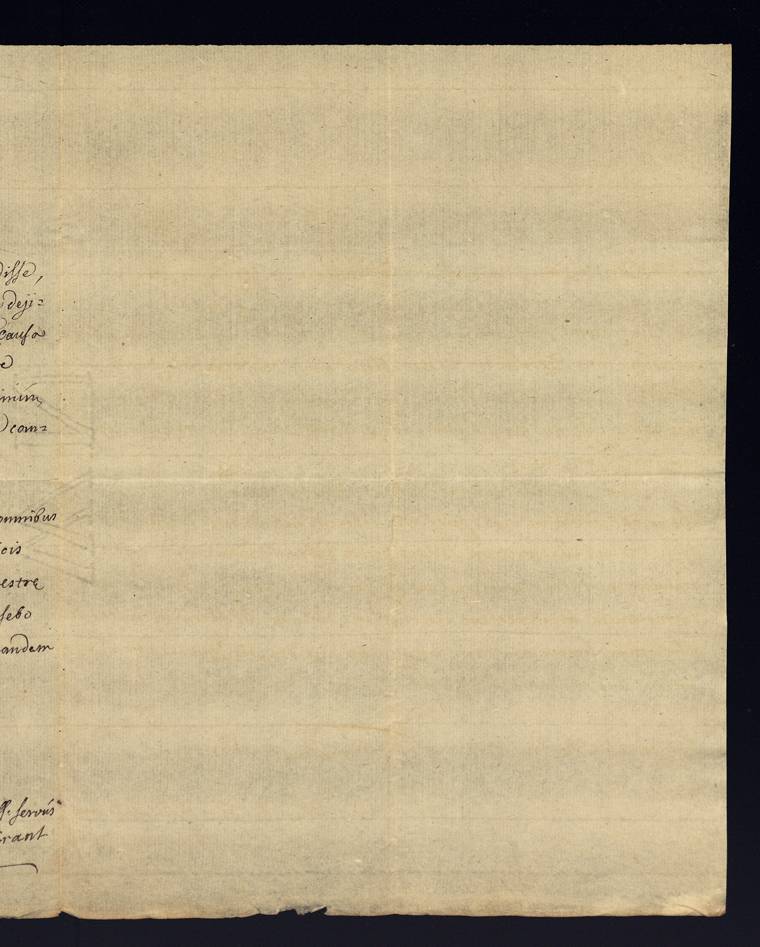 disse,
deji=
causa
e
com=
omnibus
cis
estre
sebo
andem
servus
rant